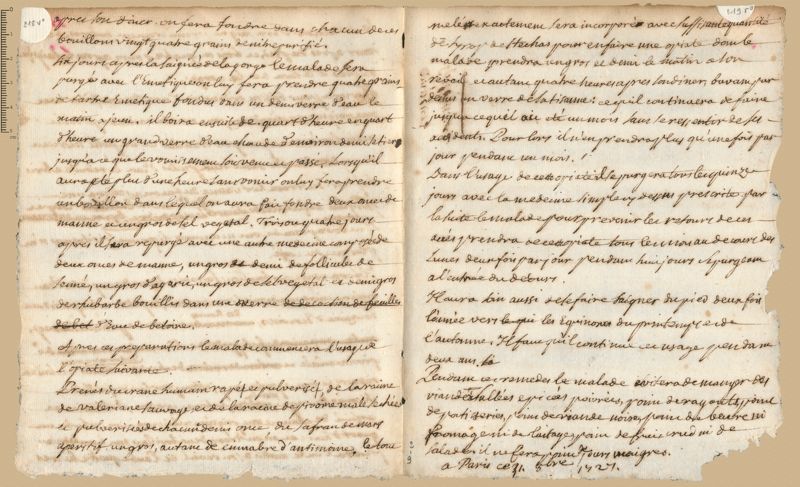 apres son diner on fera foudre dans chacun de ces
bouillons vingt quatre grains de nitre purifié.
huit jours apres la saignée de la gorge le malade sera
purgé avec l'Emetique on luy fera prendre quatre grains
de tartre Emetique foudus dans un demi verre d'eau le
matin a jeun. il boira ensuite de quart d'heure en quart
d'heure un grand verre d'eau chaude d'environ demi setier
jusqu'a ce que le vomissement soit venu et passé. Lorsqu'il
aura eté plus d'une heure sans vomir on luy fera prendre
un bouillon dans lequel on aura fait foudre deux onces de
manne et un gros de sel vegetal. Trois ou quatre jours
apres il sera repurgé avec une autre medecine composée de
deux onces de manne, un gros et demi de follicules de
senné, un gros d'agaric, un gros de sel vegetal et demi gros
de rhubarbe bouillis dans un verre de decoction de feuilles
de bet d'Eau de betoine.
Apres ces preparations le malade commencera l'usage de
l'opiate suivante.
Prenés du crane humain rapé et pulverisé, de la racine
de valeriane sauvage, et de la racine de pivoine male sechée
et pulverisée de chacun demi once du safran de mars
aperitif un gros, autant de cinnabre d'antimoine, le tout
219 r°
melé exactement sera incorporé avec suffisante quantité
de syrop de Stechas pour en faire une opiate dont le
malade prendra un gros et demi le matin a son
reveil et autant quatre heures apres son diner, buvant par
dessus un verre de sa tisanne: ce qu'il continuera de faire
jusqu'a ce qu'il ait eté un mois sans se ressentir de ses
accidents. Pour lors il n'en prendra plus qu'une fois par
jour pendant un mois.
Dans l'usage de cette opiate il se purgera tous les quinze
jours avec la medecine simple cy dessus prescrite. par
la suite le malade pour prevenir les retours de ces
accés prendra de cette opiate tous les mois au decours des
Lunes deux fois par jour pendant huit jours se purgeant
a l'entrée du decours.
Il aura soin aussi de se faire saigner du pied deux fois
l'année vers le qui les Equinoxes du printemps et de
l'automne. Il faut qu'il continue cet usage pendant
deux ans.
Pendant ces remedes le malade evitera de manger des
viandes salées epicées, poivrées, point de ragouts, point
de patisseries, point de viande noires, point de beurre ni
fromage ni de laitage, point de fruit crud ni de
salade. il ne fera point Jours maigres.
a Paris ce 31. 8bre 1727.